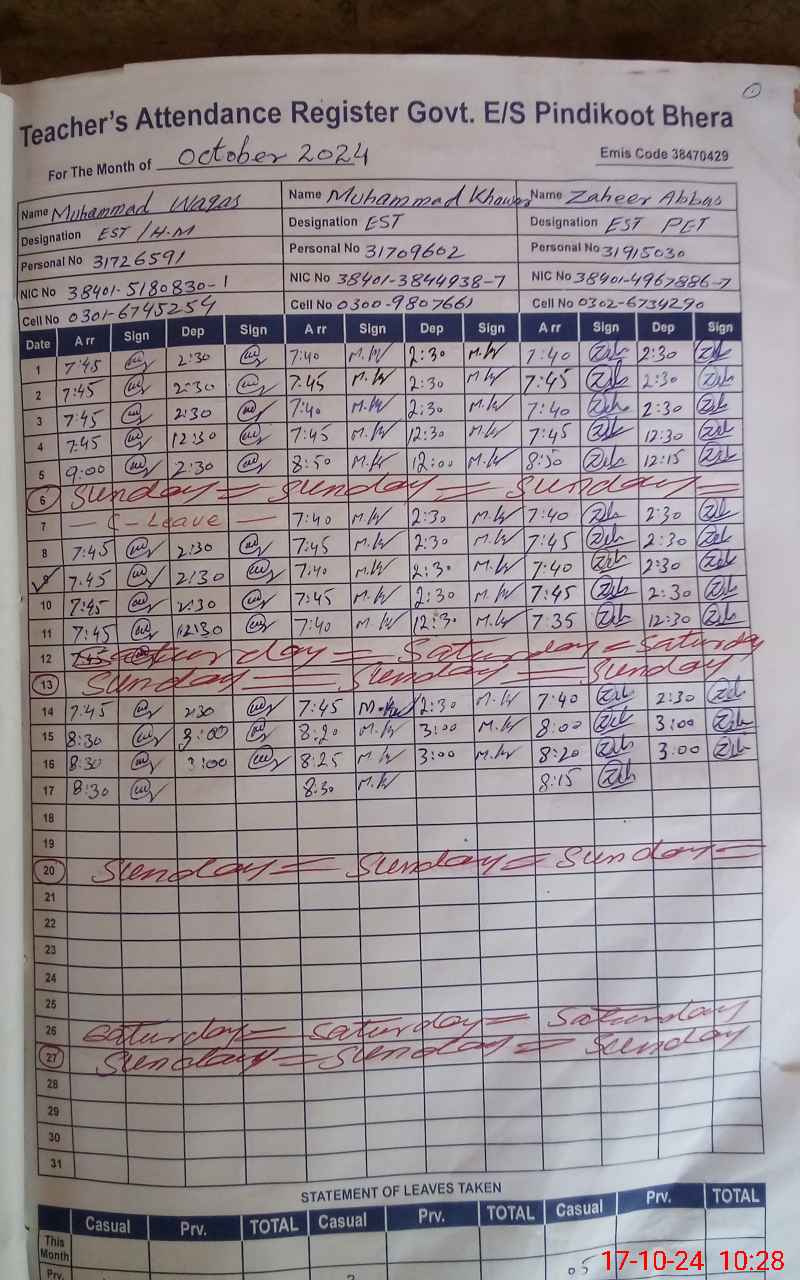 Teacher's Attendance Register Govt. E/S Pindikoot Bhera
For The Month of October 2024 Emis Code 38470429
Name Muhammad Waqas Name Muhammad Khawar Name Zaheer Abbas
Designation EST / H.M Designation EST Designation EST PET
Personal No 31726591 Personal No 31709602 Personal No 31915030
NIC No 38401-5180830-1 NIC No 38401-3844938-7 NIC No 38401-4967886-7
Cell No 0301-6745254 Cell No 0300-9807661 Cell No 0302-6734290
Date Arr Sign Dep Sign Arr Sign Dep Sign Arr Sign Dep Sign
1 7:45 2:30 7:40 M.W 2:30 M.W 7:40 2:30
2 7:45 2:30 7:45 M.W 2:30 M.W 7:45 2:30
3 7:45 2:30 7:40 M.W 2:30 M.W 7:40 2:30
4 7:45 12:30 7:45 M.W 12:30 M.W 7:45 12:30
5 9:00 2:30 8:50 M.W 12:00 M.W 8:50 12:15
6 Sunday = Sunday = Sunday =
7 — C-Leave — 7:40 M.W 2:30 M.W 7:40 2:30
8 7:45 2:30 7:45 M.W 2:30 M.W 7:45 2:30
9 7:45 2:30 7:40 M.W 2:30 M.W 7:40 2:30
10 7:45 2:30 7:45 M.W 2:30 M.W 7:45 2:30
11 7:45 12:30 7:40 M.W 12:30 M.W 7:35 12:30
12 Saturday = Saturday = Saturday
13 Sunday = Sunday = Sunday
14 7:45 2:30 7:45 2:30 M.W 7:40 2:30
15 8:30 3:00 8:20 M.W 3:00 M.W 8:00 3:00
16 8:30 3:00 8:25 M.W 3:00 M.W 8:20 3:00
17 8:30 8:30 M.W 8:15
18
19
20 Sunday = Sunday = Sunday =
21
22
23
24
25
26 Saturday = Saturday = Saturday
27 Sunday = Sunday = Sunday
28
29
30
31
STATEMENT OF LEAVES TAKEN
Casual Prv. TOTAL Casual Prv. TOTAL Casual Prv. TOTAL
This Month
Prv. 05
17-10-24 10:28